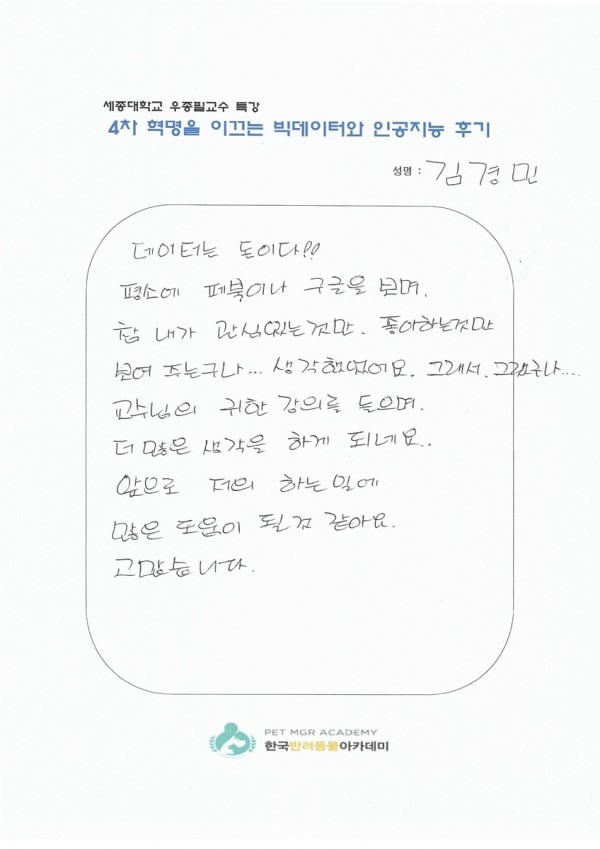 세종대학교 우종필교수 특강
4차 혁명을 이끄는 빅데이터와 인공지능 후기
성명 : 김경민
데이터는 돈이다!!
평소에 페북이나 구글을 보며.
참 내가 관심있는것만. 좋아하는것만
보여 주는구나... 생각했었어요. 그래서. 그랬구나....
교수님의 귀한 강의를 들으며.
더 많은 생각을 하게 되네요..
앞으로 저의 하는 일에
많은 도움이 될것 같아요.
고맙습니다.
PET MGR ACADEMY
한국반려동물아카데미